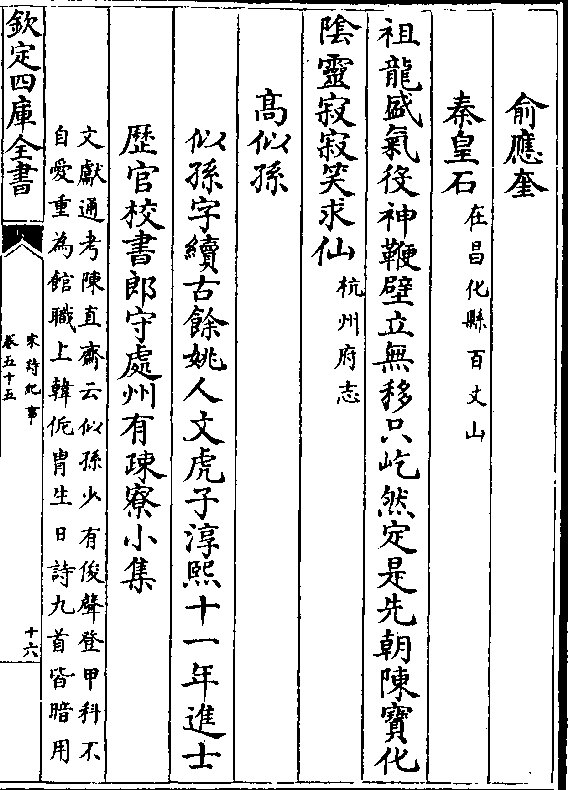 俞應奎
秦皇石在昌化縣百丈山
祖龍盛氣役神鞭壁立無移只屹然定是先朝陳寶化
陰靈寂寂笑求仙杭州府志
髙似孫
似孫字續古餘姚人文虎子淳熙十一年進士
歴官校書郎守處州有疎寮小集
文獻通考陳直齋云似孫少有俊聲登甲科不
自愛重為館職上韓侂胄生日詩九首皆暗用
欽定四庫全書
宋詩紀事
卷五十五
十六